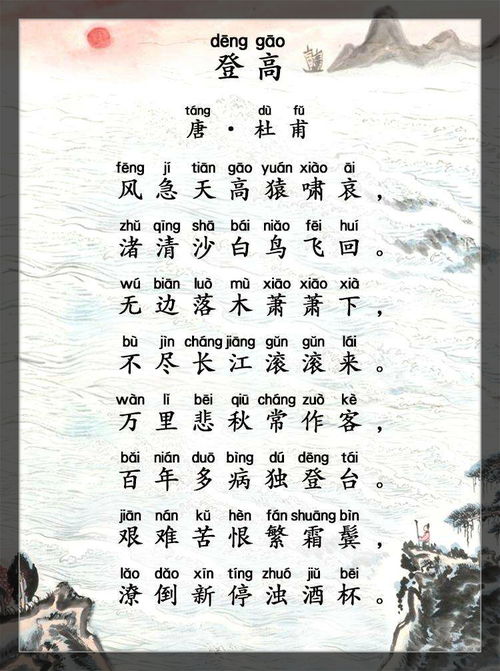 dēng gāo
登高
táng dù fǔ
唐·杜甫
fēng jí tiān gāo yuán xiào āi
风急天高猿啸哀，
zhǔ qīng shā bái niǎo fēi huí
渚清沙白鸟飞回。
wú biān luò mù xiāo xiāo xià
无边落木萧萧下，
bù jìn cháng jiāng gǔn gǔn lái
不尽长江滚滚来。
wàn lǐ bēi qiū cháng zuò kè
万里悲秋常作客，
bǎi nián duō bìng dú dēng tái
百年多病独登台。
jiān nán kǔ hèn fán shuāng bìn
艰难苦恨繁霜鬓，
lǎo dǎo xīn tíng zhuó jiǔ bēi
潦倒新停浊酒杯。